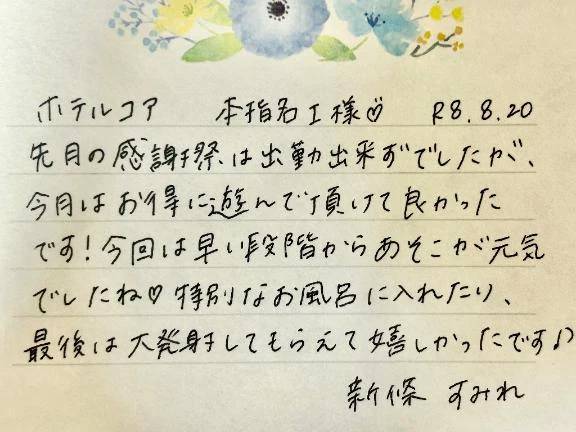 ホテルコア 本指名I様♡ R8.8.20
先月の感謝祭は出勤出来ずでしたが、
今月はお得に遊んで頂けて良かった
です!今回は早い段階からあそこが元気
でしたね♡特別なお風呂に入れたり、
最後は大発射してもらえて嬉しかったです♪
新條 すみれ